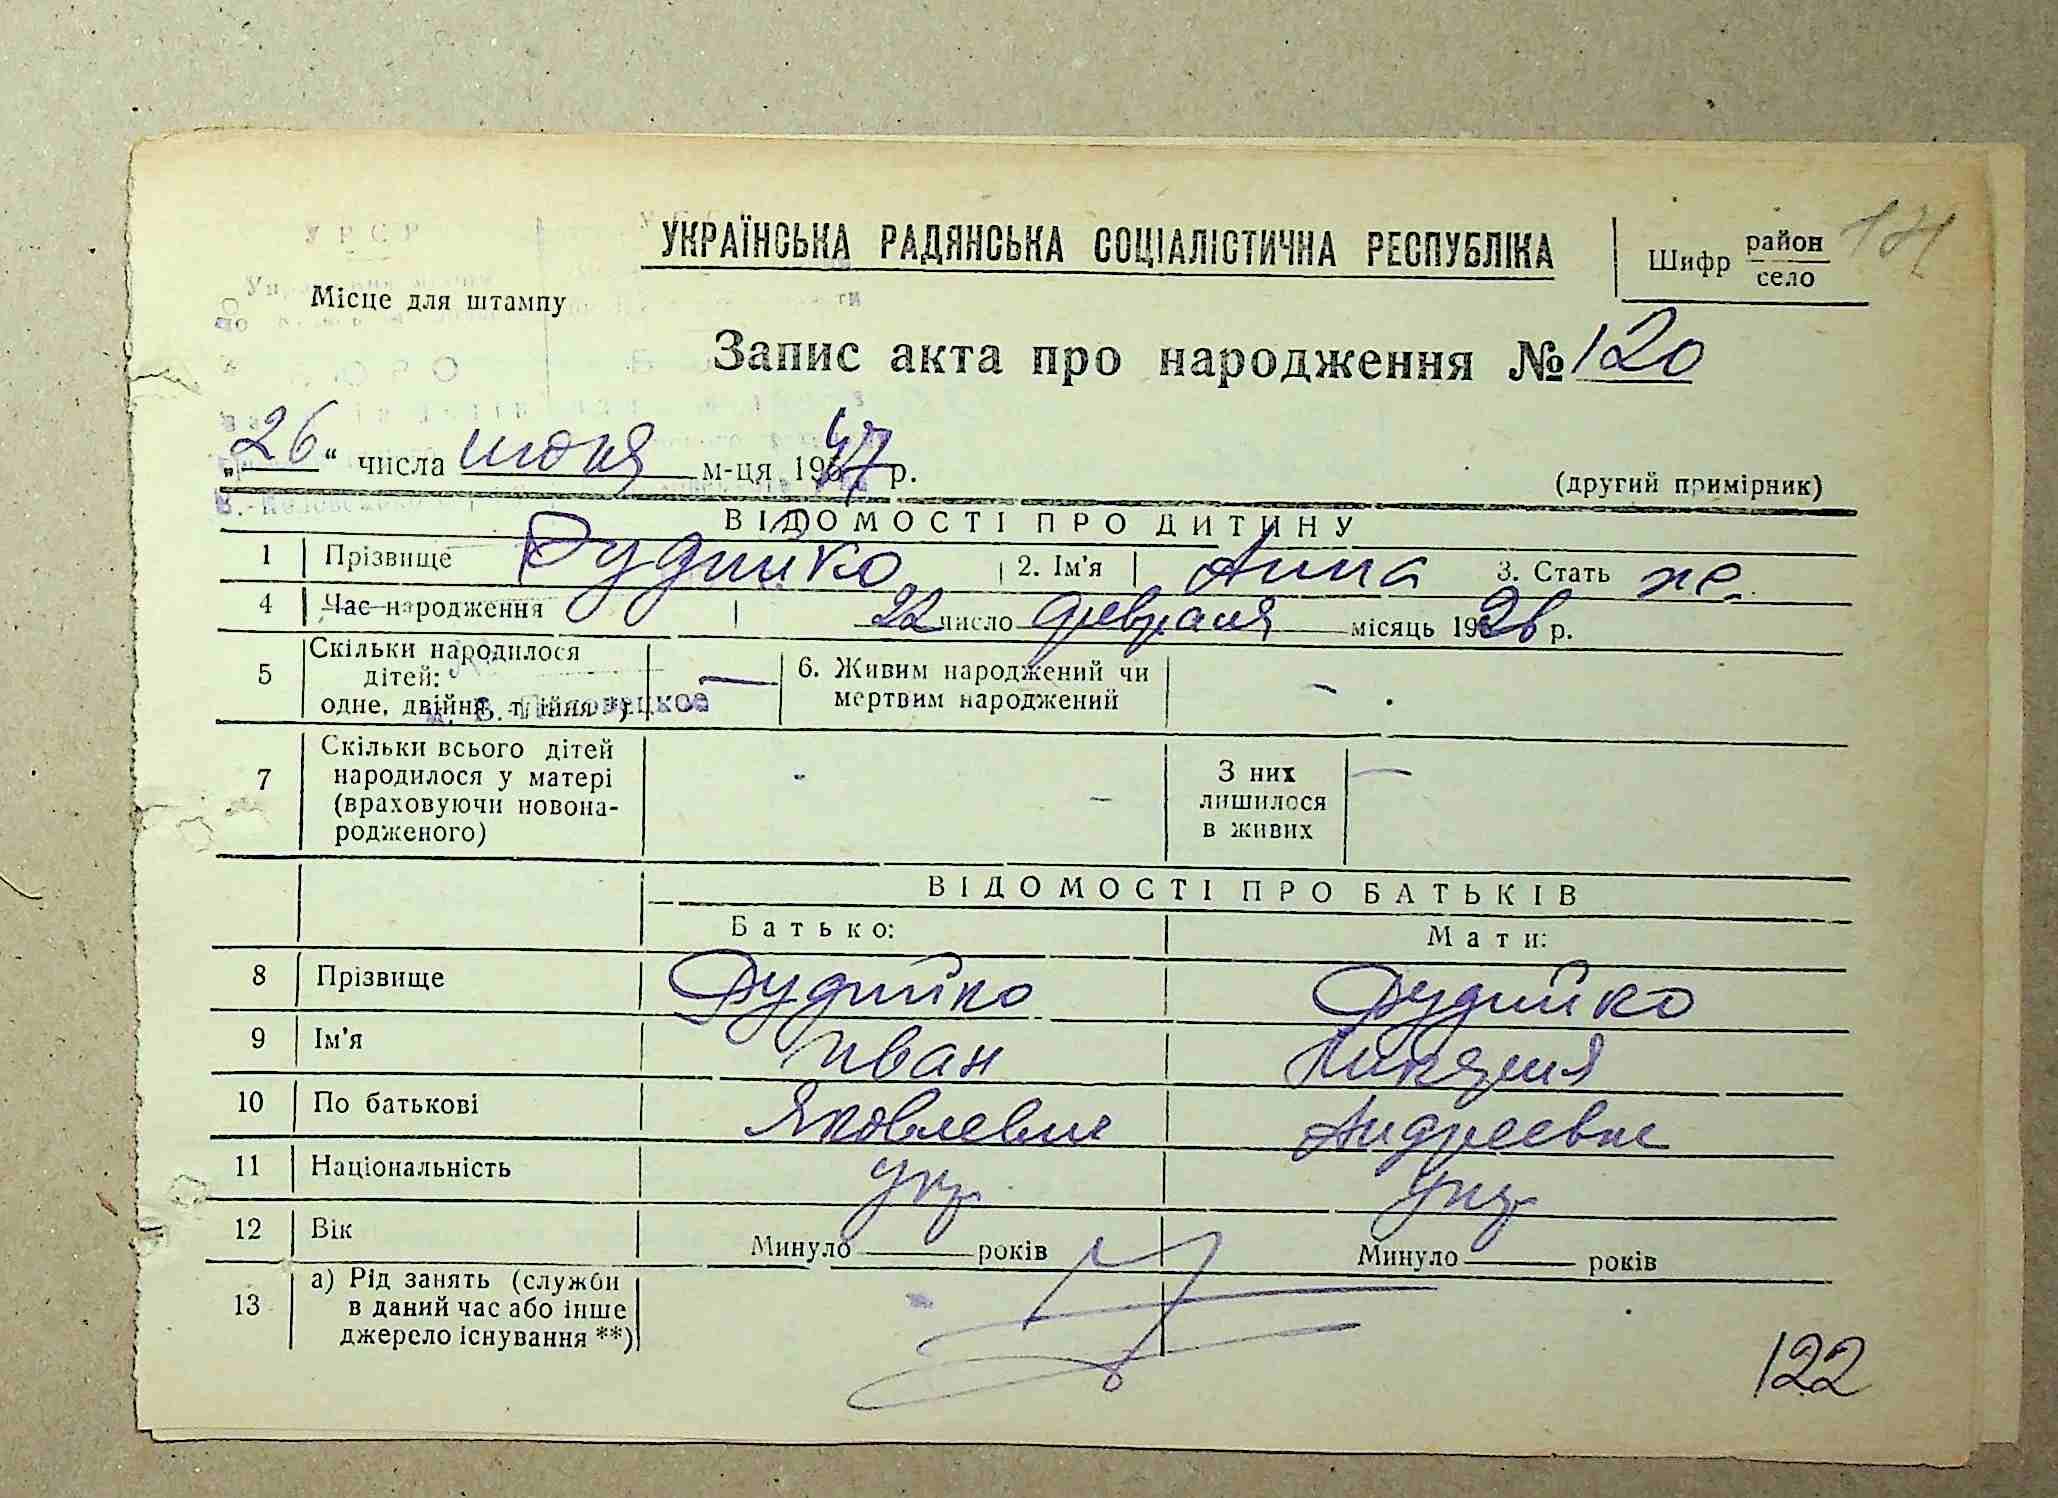 УКРАЇНСЬКА РАДЯНСЬКА СОЦІАЛІСТИЧНА РЕСПУБЛІКА
Шифр район
село
УРСР
Місце для штампу
Запис акта про народження № 120
„26“ числа июня м-ця 1947 р.
(другий примірник)
ВІДОМОСТІ ПРО ДИТИНУ
1 Прізвище Дудийко 2. Ім'я Анна 3. Стать же.
4 Час народження 22 число февраля місяць 1926 р.
5 Скільки народилося
дітей:
одне, двійня, трійня *) —
6. Живим народжений чи
мертвим народжений -
7 Скільки всього дітей
народилося у матері
(враховуючи новона-
родженого) -
З них
лишилося
в живих —
ВІДОМОСТІ ПРО БАТЬКІВ
Батько: Мати:
8 Прізвище Дудийко Дудийко
9 Ім'я Иван
10 По батькові Яковлевич Андреевне
11 Національність укр. укр
12 Вік Минуло — років Минуло — років
13 а) Рід занять (служби
в даний час або інше
джерело існування **)
122